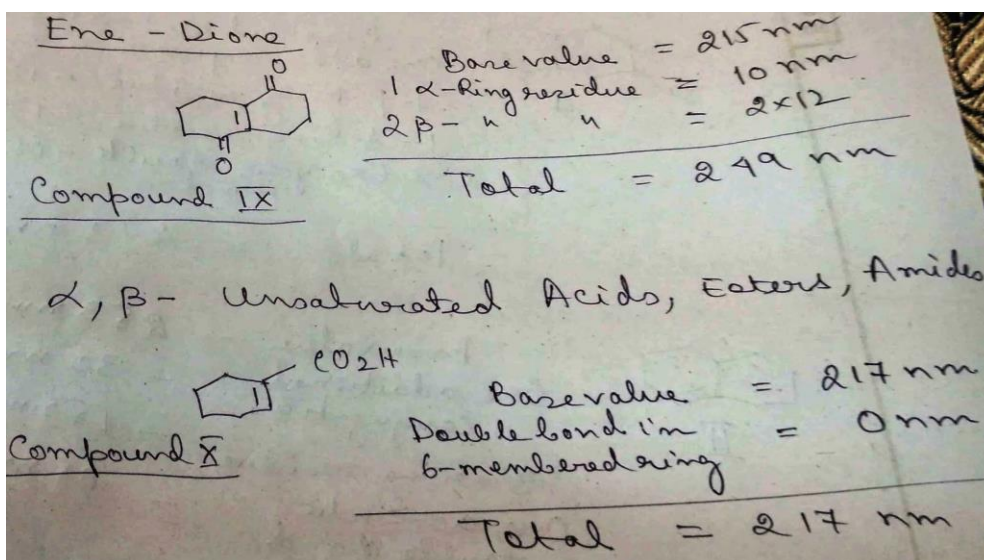 Ene - Dione
O
O
Compound IX
Base value = 215 nm
1 α-Ring residue = 10 nm
2β- " " = 2×12
Total = 249 nm
α, β- Unsaturated Acids, Esters, Amides
CO2H
Compound X
Base value = 217 nm
Double bond in = 0 nm
6-membered ring
Total = 217 nm